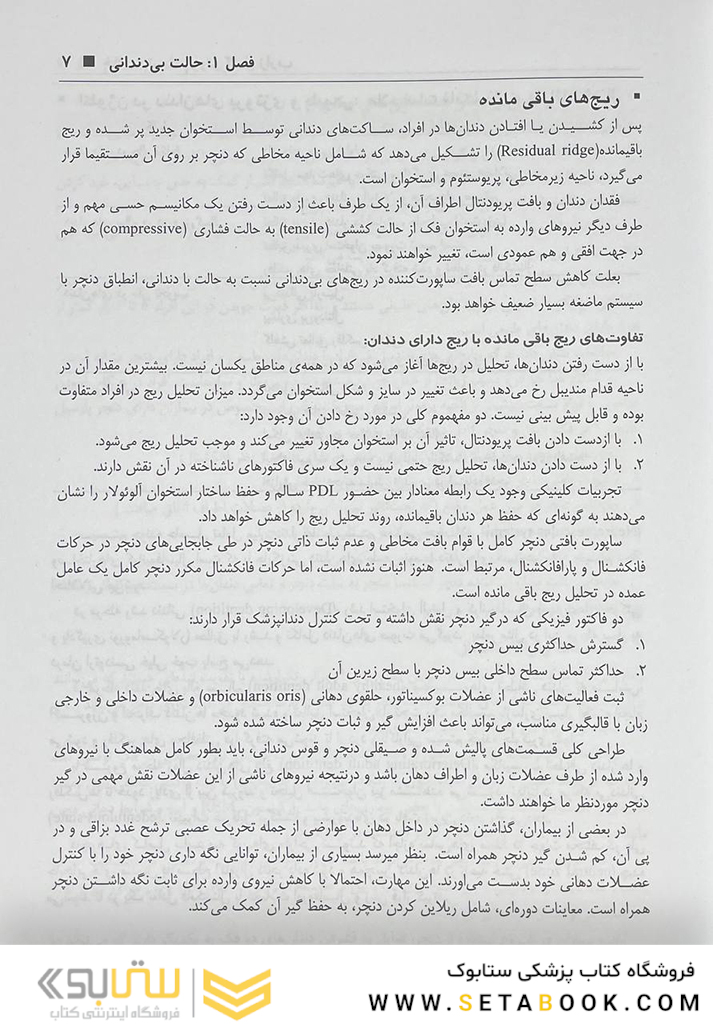 فصل ۱: حالت بی‌دندانی ■ ۷
▪ ریج‌های باقی مانده
پس از کشیدن یا افتادن دندان‌ها در افراد، ساکت‌های دندانی توسط استخوان جدید پر شده و ریج
باقیمانده(Residual ridge) را تشکیل می‌دهد که شامل ناحیه مخاطی که دنچر بر روی آن مستقیما قرار
می‌گیرد، ناحیه زیرمخاطی، پریوستئوم و استخوان است.
فقدان دندان و بافت پریودنتال اطراف آن، از یک طرف باعث از دست رفتن یک مکانیسم حسی مهم و از
طرف دیگر نیروهای وارده به استخوان فک از حالت کششی (tensile) به حالت فشاری (compressive) که هم
در جهت افقی و هم عمودی است، تغییر خواهند نمود.
بعلت کاهش سطح تماس بافت ساپورت‌کننده در ریج‌های بی‌دندانی نسبت به حالت با دندانی، انطباق دنچر با
سیستم ماضغه بسیار ضعیف خواهد بود.
تفاوت‌های ریج باقی مانده با ریج دارای دندان:
با از دست رفتن دندان‌ها، تحلیل در ریج‌ها آغاز می‌شود که در همه‌ی مناطق یکسان نیست. بیشترین مقدار آن در
ناحیه قدام مندیبل رخ می‌دهد و باعث تغییر در سایز و شکل استخوان می‌گردد. میزان تحلیل ریج در افراد متفاوت
بوده و قابل پیش بینی نیست. دو مفهموم کلی در مورد رخ دادن آن وجود دارد:
۱. با ازدست دادن بافت پریودنتال، تاثیر آن بر استخوان مجاور تغییر می‌کند و موجب تحلیل ریج می‌شود.
۲. با از دست دادن دندان‌ها، تحلیل ریج حتمی نیست و یک سری فاکتورهای ناشناخته در آن نقش دارند.
تجربیات کلینیکی وجود یک رابطه معنادار بین حضور PDL سالم و حفظ ساختار استخوان آلوئولار را نشان
می‌دهند به گونه‌ای که حفظ هر دندان باقیمانده، روند تحلیل ریج را کاهش خواهد داد.
ساپورت بافتی دنچر کامل با قوام بافت مخاطی و عدم ثبات ذاتی دنچر در طی جابجایی‌های دنچر در حرکات
فانکشنال و پارافانکشنال، مرتبط است. هنوز اثبات نشده است، اما حرکات فانکشنال مکرر دنچر کامل یک عامل
عمده در تحلیل ریج باقی مانده است.
دو فاکتور فیزیکی که درگیر دنچر نقش داشته و تحت کنترل دندانپزشک قرار دارند:
۱. گسترش حداکثری بیس دنچر
۲. حداکثر تماس سطح داخلی بیس دنچر با سطح زیرین آن
ثبت فعالیت‌های ناشی از عضلات بوکسیناتور، حلقوی دهانی (orbicularis oris) و عضلات داخلی و خارجی
زبان با قالبگیری مناسب، می‌تواند باعث افزایش گیر و ثبات دنچر ساخته شده شود.
طراحی کلی قسمت‌های پالیش شده و صیقلی دنچر و قوس دندانی، باید بطور کامل هماهنگ با نیروهای
وارد شده از طرف عضلات زبان و اطراف دهان باشد و درنتیجه نیروهای ناشی از این عضلات نقش مهمی در گیر
دنچر موردنظر ما خواهند داشت.
در بعضی از بیماران، گذاشتن دنچر در داخل دهان با عوارضی از جمله تحریک عصبی ترشح غدد بزاقی و در
پی آن، کم شدن گیر دنچر همراه است. بنظر میرسد بسیاری از بیماران، توانایی نگه داری دنچر خود را با کنترل
عضلات دهانی خود بدست می‌اورند. این مهارت، احتمالا با کاهش نیروی وارده برای ثابت نگه داشتن دنچر
همراه است. معاینات دوره‌ای، شامل ریلاین کردن دنچر، به حفظ گیر آن کمک می‌کند.
فروشگاه کتاب پزشکی ستابوک
WWW.SETABOOK.COM
ستابوک
فروشگاه اینترنتی کتاب